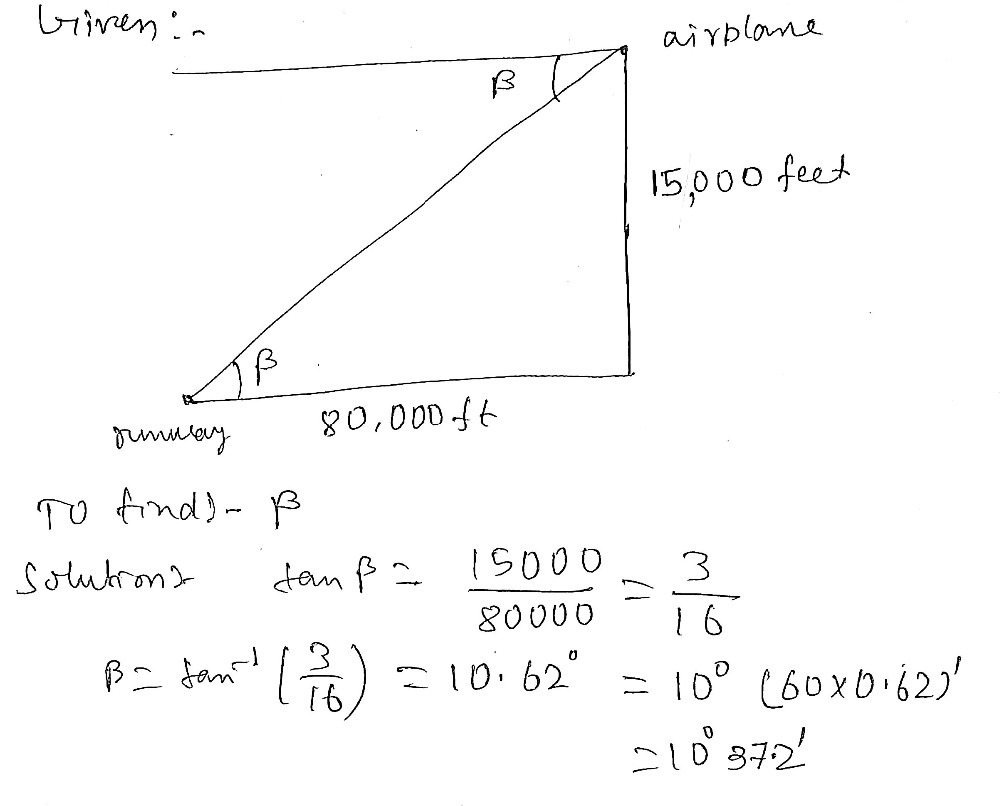 Given:-
airplane
β
15,000 feet
β
80,000 ft
runway
To find:- β
Solution:- tan β = 15000/80000 = 3/16
β = tan⁻¹ (3/16) = 10.62° = 10° (60×0.62)'
= 10° 37.2'